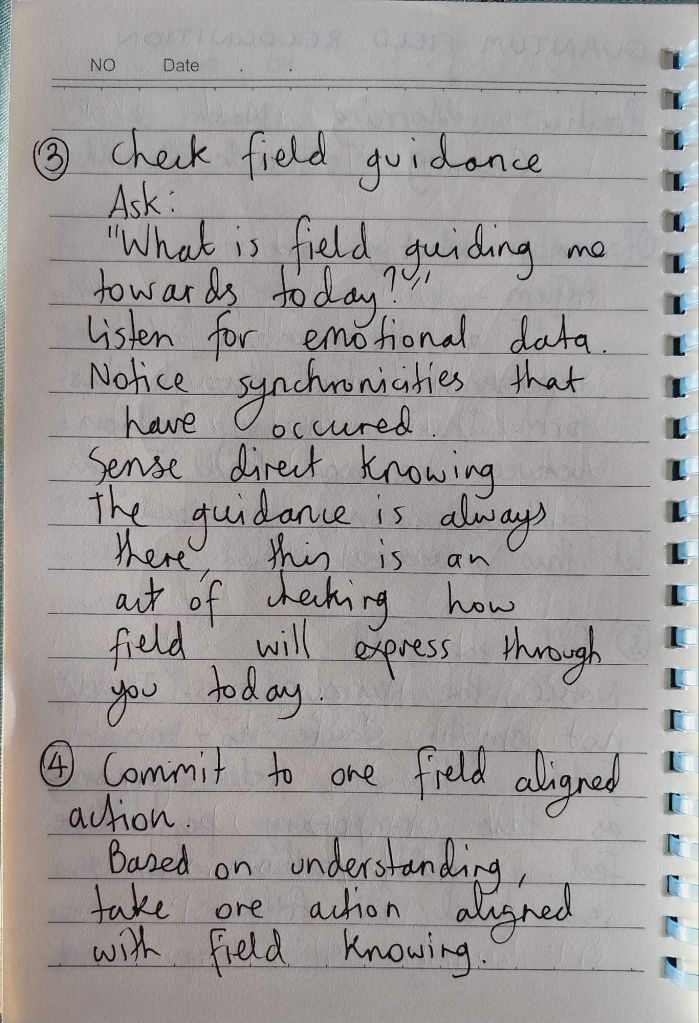 NO Date . .
③ Check field guidance
Ask:
"What is field guiding me
towards today?""
Listen for emotional data.
Notice synchronicities that
have occured.
Sense direct knowing
The guidance is always
there, this is an
act of checking how
field will express through
you today.
④ Commit to one field aligned
action.
Based on understanding,
take one action aligned
with field knowing.